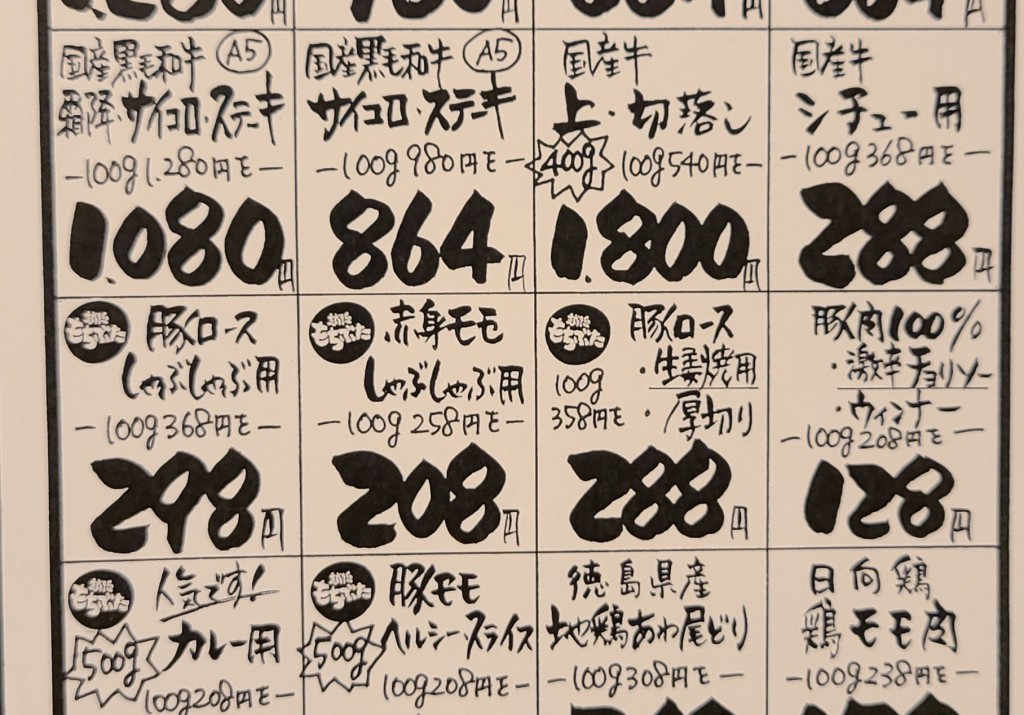 国産黒毛和牛 A5
霜降・サイコロ・ステーキ
-100g 1.280円を-
1.080円
国産黒毛和牛 A5
サイコロ・ステーキ
-100g 980円を-
864円
国産牛
上・切落し
400g 100g 540円を-
1.800円
国産牛
シチュー用
-100g 368円を-
288円
豚ロース
しゃぶしゃぶ用
-100g 368円を-
298円
赤身モモ
しゃぶしゃぶ用
-100g 258円を-
208円
豚ロース
・生姜焼用
・厚切り
100g
358円を
288円
豚肉100%
・激辛チョリソー
・ウィンナー
-100g 208円を-
128円
人気です!
カレー用
500g
100g 208円を-
豚モモ
ヘルシースライス
500g
100g 208円を-
徳島県産
地鶏あわ尾どり
-100g 308円を-
日向鶏
鶏モモ肉
-100g 238円を-